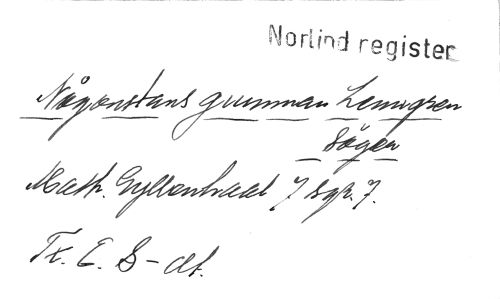 Norlind register
Någonstans gumman Lenngren
säger
Math. Gyllenhaal 7 sgr. 7.
Tx. E. S-dt.